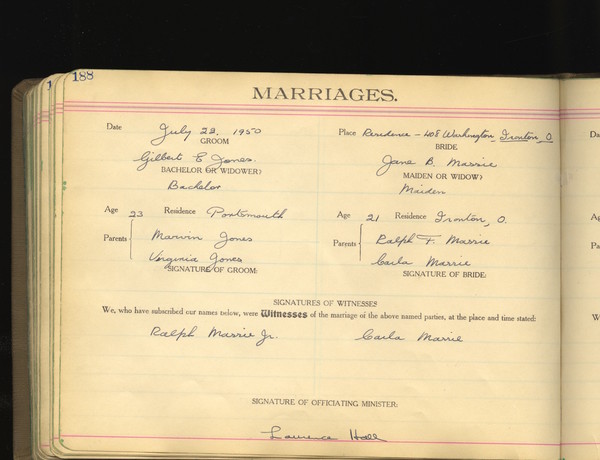 188
MARRIAGES.
Date July 22, 1950 Place Residence - 408 Washington, Ironton, O.
GROOM BRIDE
Gilbert E Jones. Jane B. Massie
BACHELOR OR WIDOWER? MAIDEN OR WIDOW?
Bachelor Maiden
Age 23 Residence Portsmouth Age 21 Residence Ironton, O.
Parents Marvin Jones Parents Ralph F. Massie
Virginia Jones Carla Massie
SIGNATURE OF GROOM: SIGNATURE OF BRIDE:
SIGNATURES OF WITNESSES
We, who have subscribed our names below, were Witnesses of the marriage of the above named parties, at the place and time stated:
Ralph Massie Jr. Carla Massie
SIGNATURE OF OFFICIATING MINISTER:
Lawrence Hall